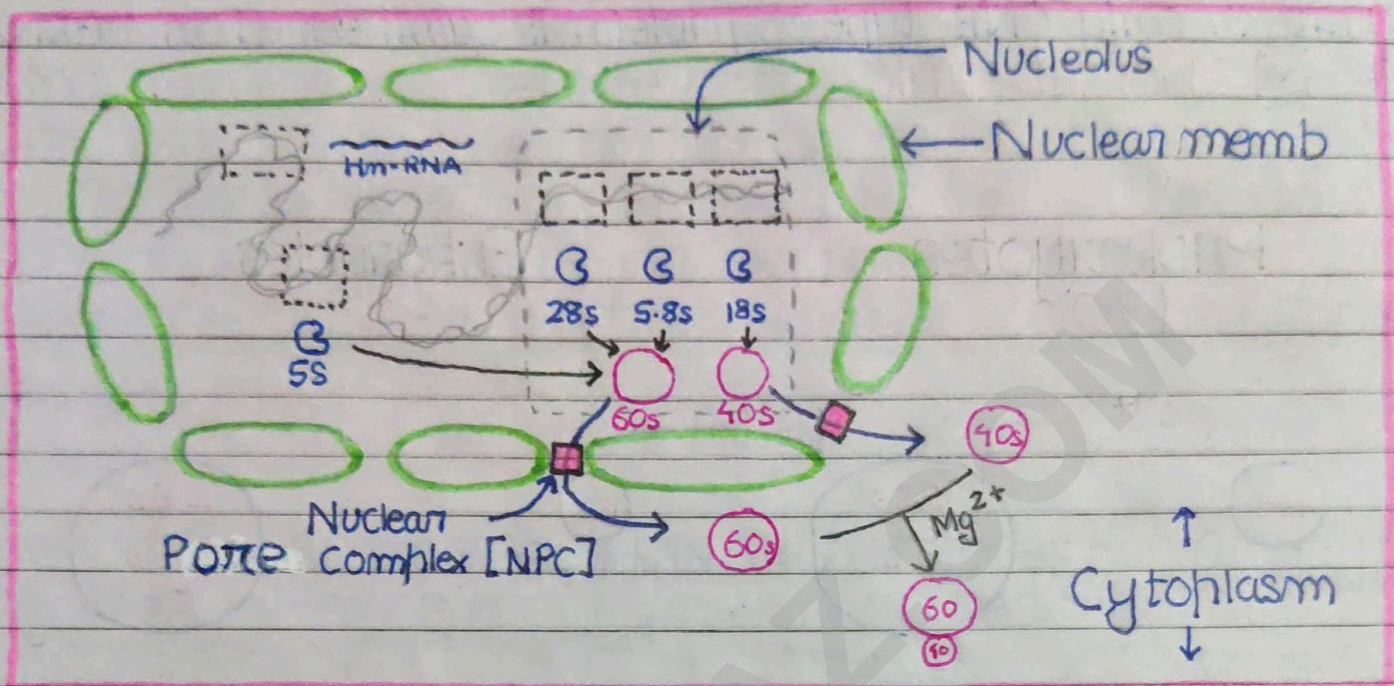 Nucleolus
Nuclear memb
Hn-RNA
28s 5.8s 18s
5S
60s 40s
40s
Nuclear
Pore Complex [NPC]
60s
Mg2+
60
40
Cytoplasm
ZOOM